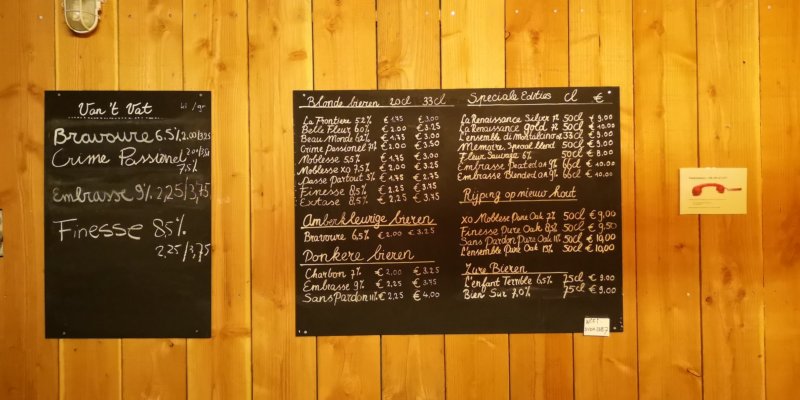 Van 't Vat kl / gr
Bravoure 6.5% 2.00/3.25
Crime Passionel 2.00/3.50
7,5%
Embrasse 9% 2,25/3,75
Finesse 8,5%
2,25/3,75
Blonde bieren 20cl 33cl
La Frontière 5.2% € 1.75 € 3.00
Belle Fleur 6.0% € 2.00 € 3.25
Beau Monde € 1.75 € 3.00
Crime Passionel € 2.00 € 3.50
Noblesse 5.5% € 1.75
Noblesse XO 7,5% € 2.00
Passe Partout 5% € 1.75
Finesse 8,5% € 2.25 € 3.75
Extase 8,5% € 2.25 € 3.75
Amberkleurige bieren
Bravoure 6,5% € 2.00 € 3.25
Donkere bieren
Charbon 7% € 2,00 € 3,25
Embrasse 9% € 2.25 € 3.75
Sans Pardon 11% € 2,25 € 4,00
Speciale Edities cl €
La Renaissance Silver 50cl € 9,00
La Renaissance gold 50cl € 9,00
L'ensemble di Montalcino 33cl € 9,00
Memoire, Spraakblond 50cl € 9,00
Fleur Sauvage 6% 50cl € 8.00
Embrasse Peated 9% 66cl € 10.00
Embrasse Blended 9% 66cl € 10.00
Rijping op nieuw hout
XO Noblesse Pure Oak 7% 50cl € 9,00
Finesse Pure Oak 8% 50cl € 9,50
Sans Pardon Pure Oak 11% 50cl € 10,00
L'ensemble Pure Oak 13% 50cl € 10,00
Zure Bieren
L'enfant Terrible 6,5% 75cl € 9.00
Bien Sur 7.0% 75cl € 9.00